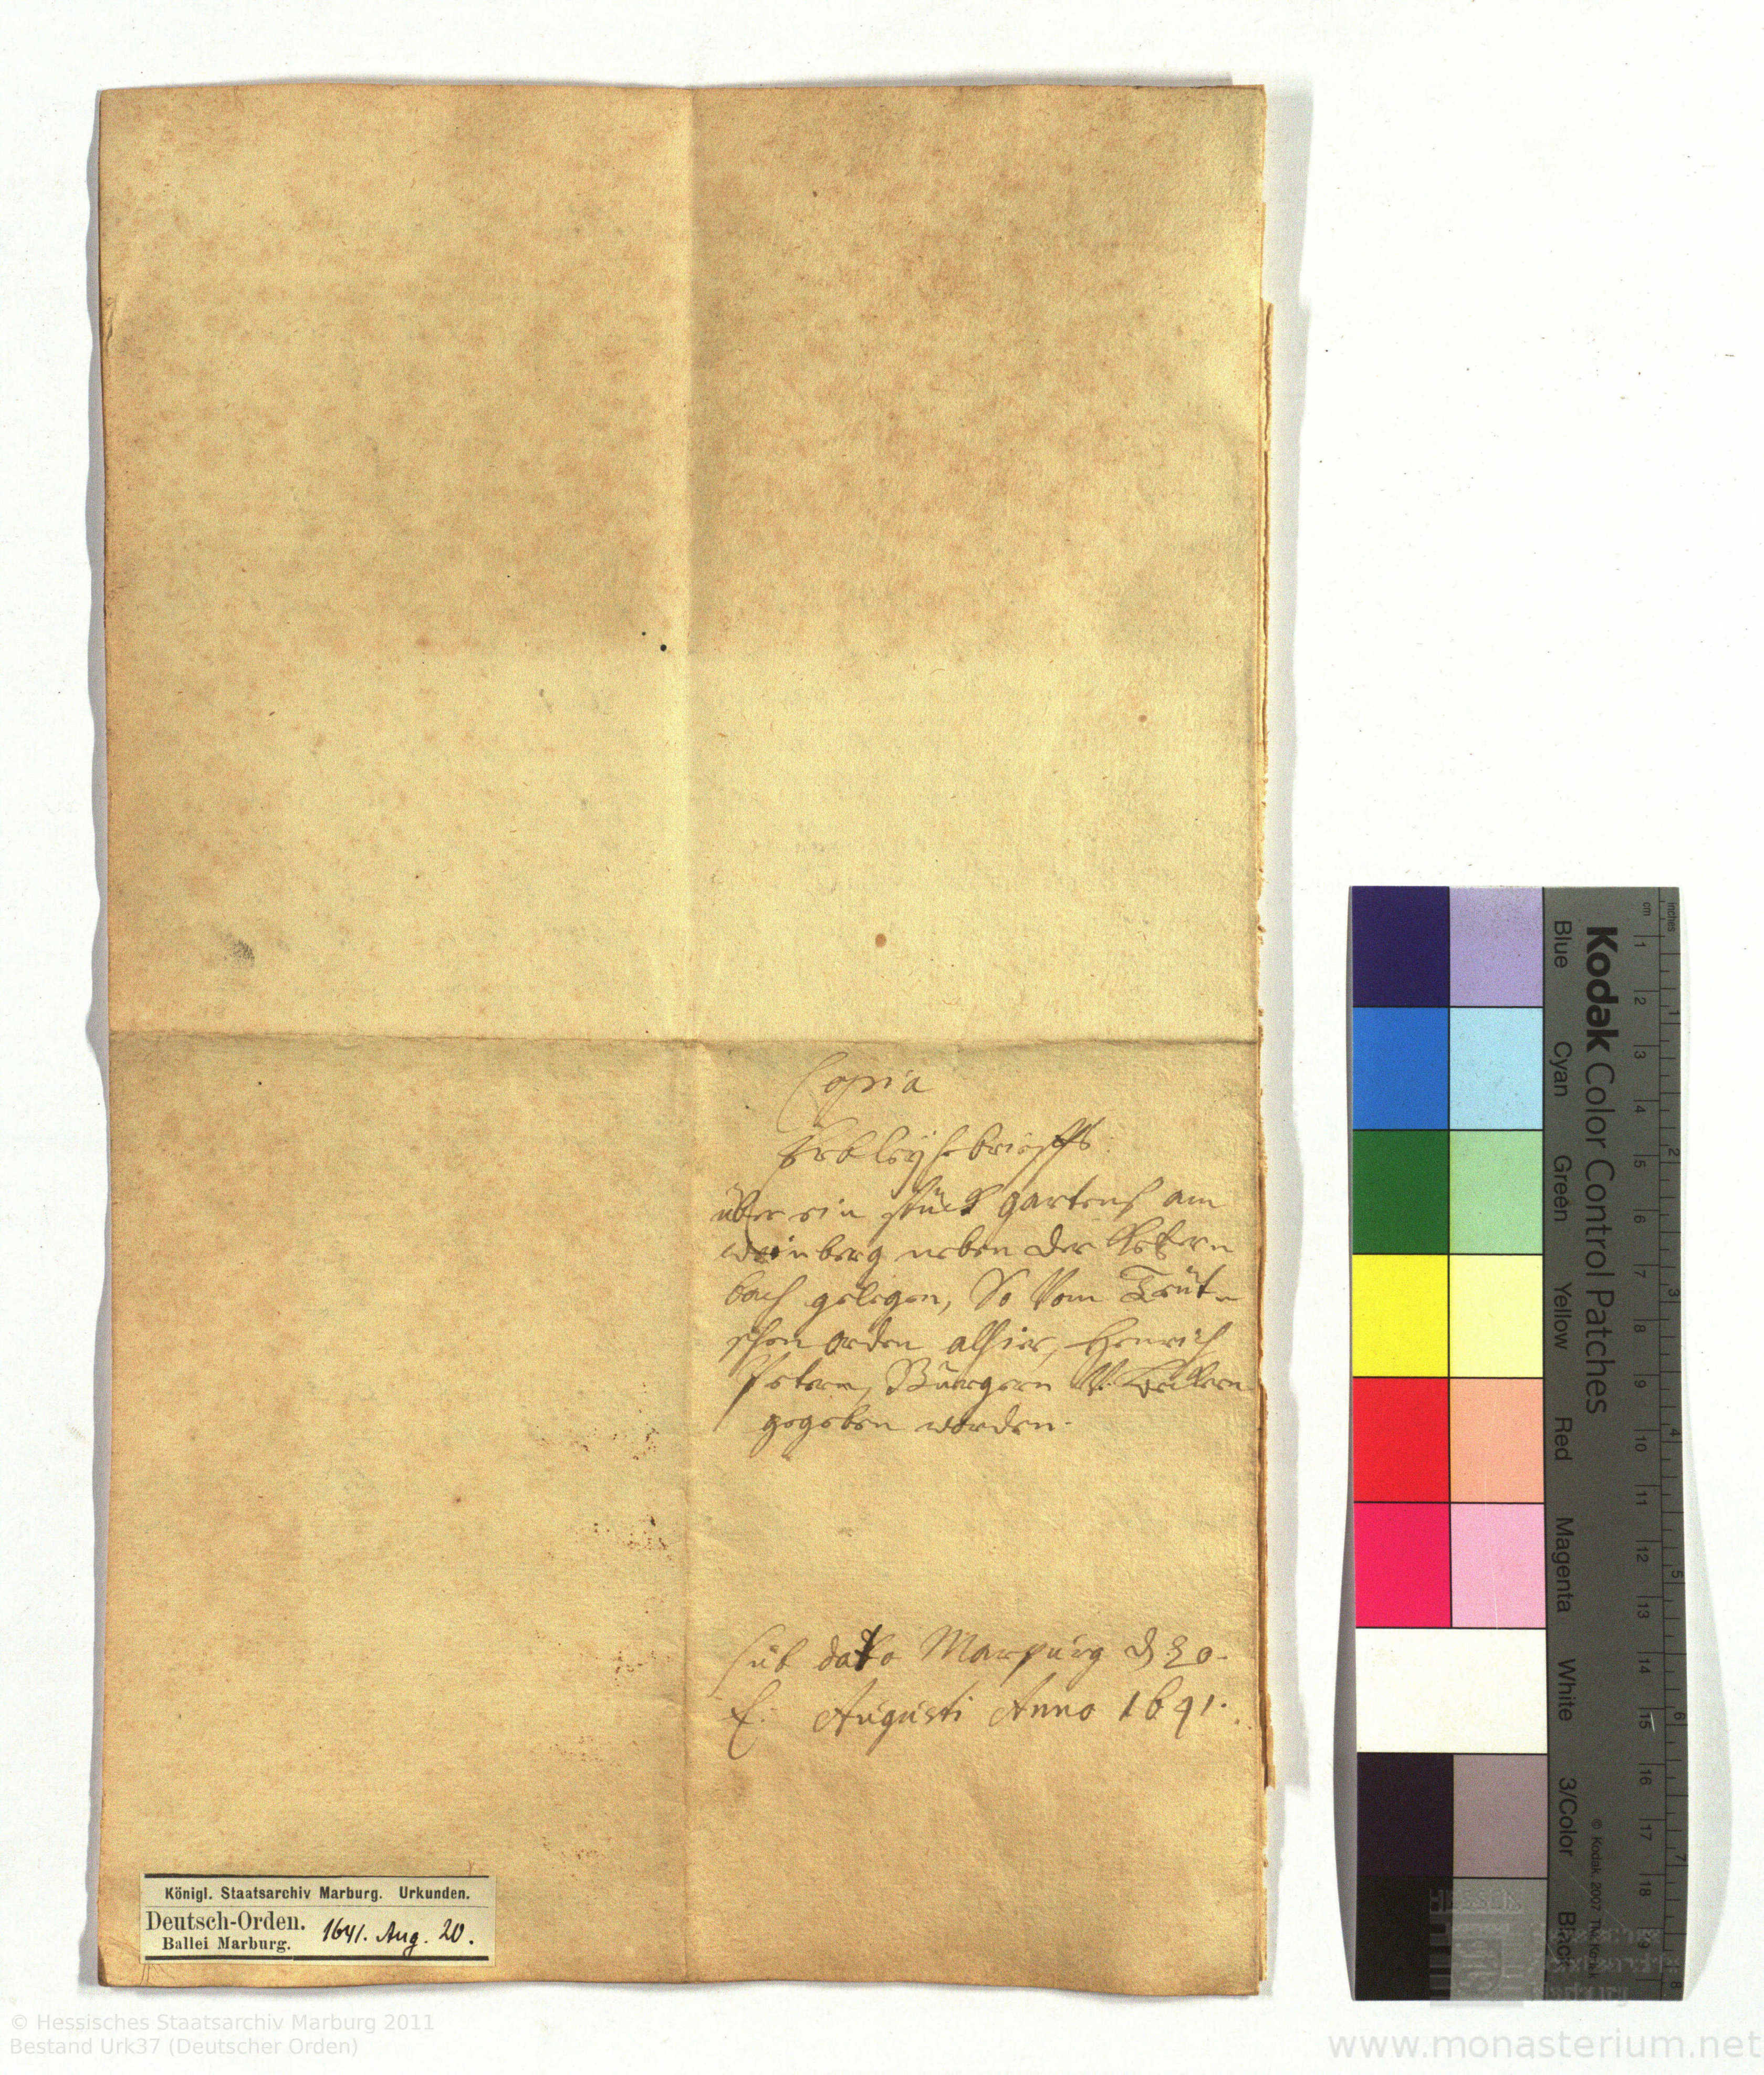 Copia
Erbleyhebrieffs
über ein stück gartens am
weinberg neben der Ketzern
bach gelegen, So Vom Teüt-
schen orden alhier, Henrich
Petern, Bürgern
gegeben worden.
sub dato Marpurg d. 20.
Augusti Anno 1641.
Königl. Staatsarchiv Marburg. Urkunden.
Deutsch-Orden.
Ballei Marburg.
1641. Aug. 20.
© Hessisches Staatsarchiv Marburg 2011
Bestand Urk37 (Deutscher Orden)
www.monasterium.net
Kodak Color Control Patches
© Kodak, 2007 TM: Kodak
Blue Cyan Green Yellow Red Magenta White 3/Color Black
cm 1 2 3 4 5 6 7 8 9 10 11 12 13 14 15 16 17 18 19
inches 1 2 3 4 5 6 7 8